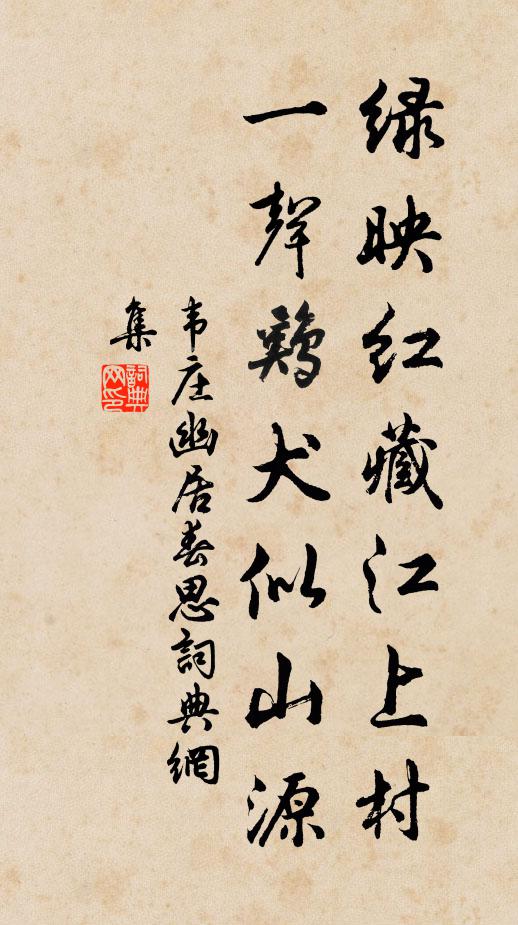 绿映红藏江上村
一声鸡犬似山源
韦庄幽居春思词典網
集
詞典网印